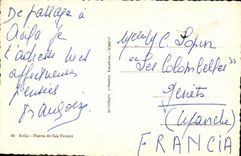 De passage à
Avila je
t'adresse mes
affectueuses
pensées
Françoise
44 Avila.-Puerta de San Vicente
C.
"Les Colombelles"
Genêts
(Manche)
FRANCIA